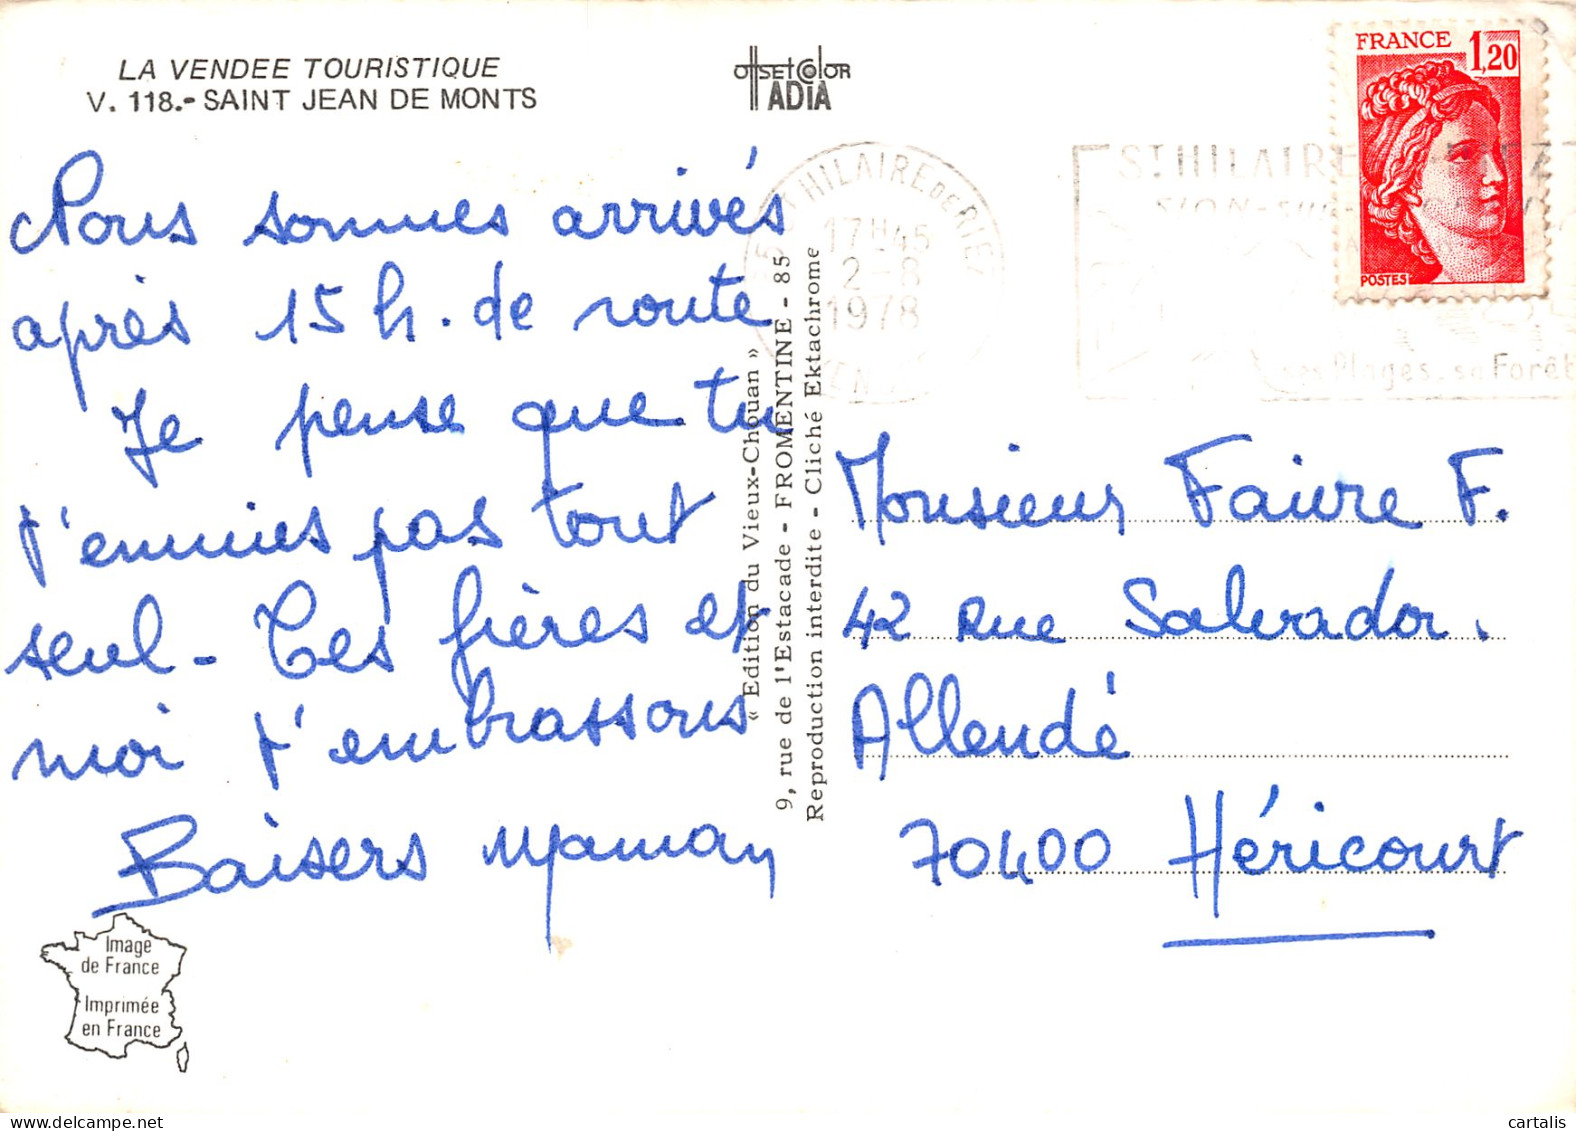 LA VENDEE TOURISTIQUE
V. 118.- SAINT JEAN DE MONTS
OffSET COlOR
ADIA
FRANCE 1,20
POSTES
85 ST HILAIRE DE RIEZ
17H45
2-8
1978
VENDEE
ST HILAIRE
SION-SUR-
ses Plages. sa Forêt
Nous sommes arrivés
après 15 h. de route
Je pense que tu
t'ennuies pas tout
seul - Tes frères et
moi t'embrassons
Baisers Maman
« Edition du Vieux-Chouan »
9, rue de l'Estacade - FROMENTINE - 85
Reproduction interdite - Cliché Ektachrome
Monsieur Faivre F.
42 Rue Salvador.
Allendé
70400 Héricourt
Image
de France
Imprimée
en France
cartalis